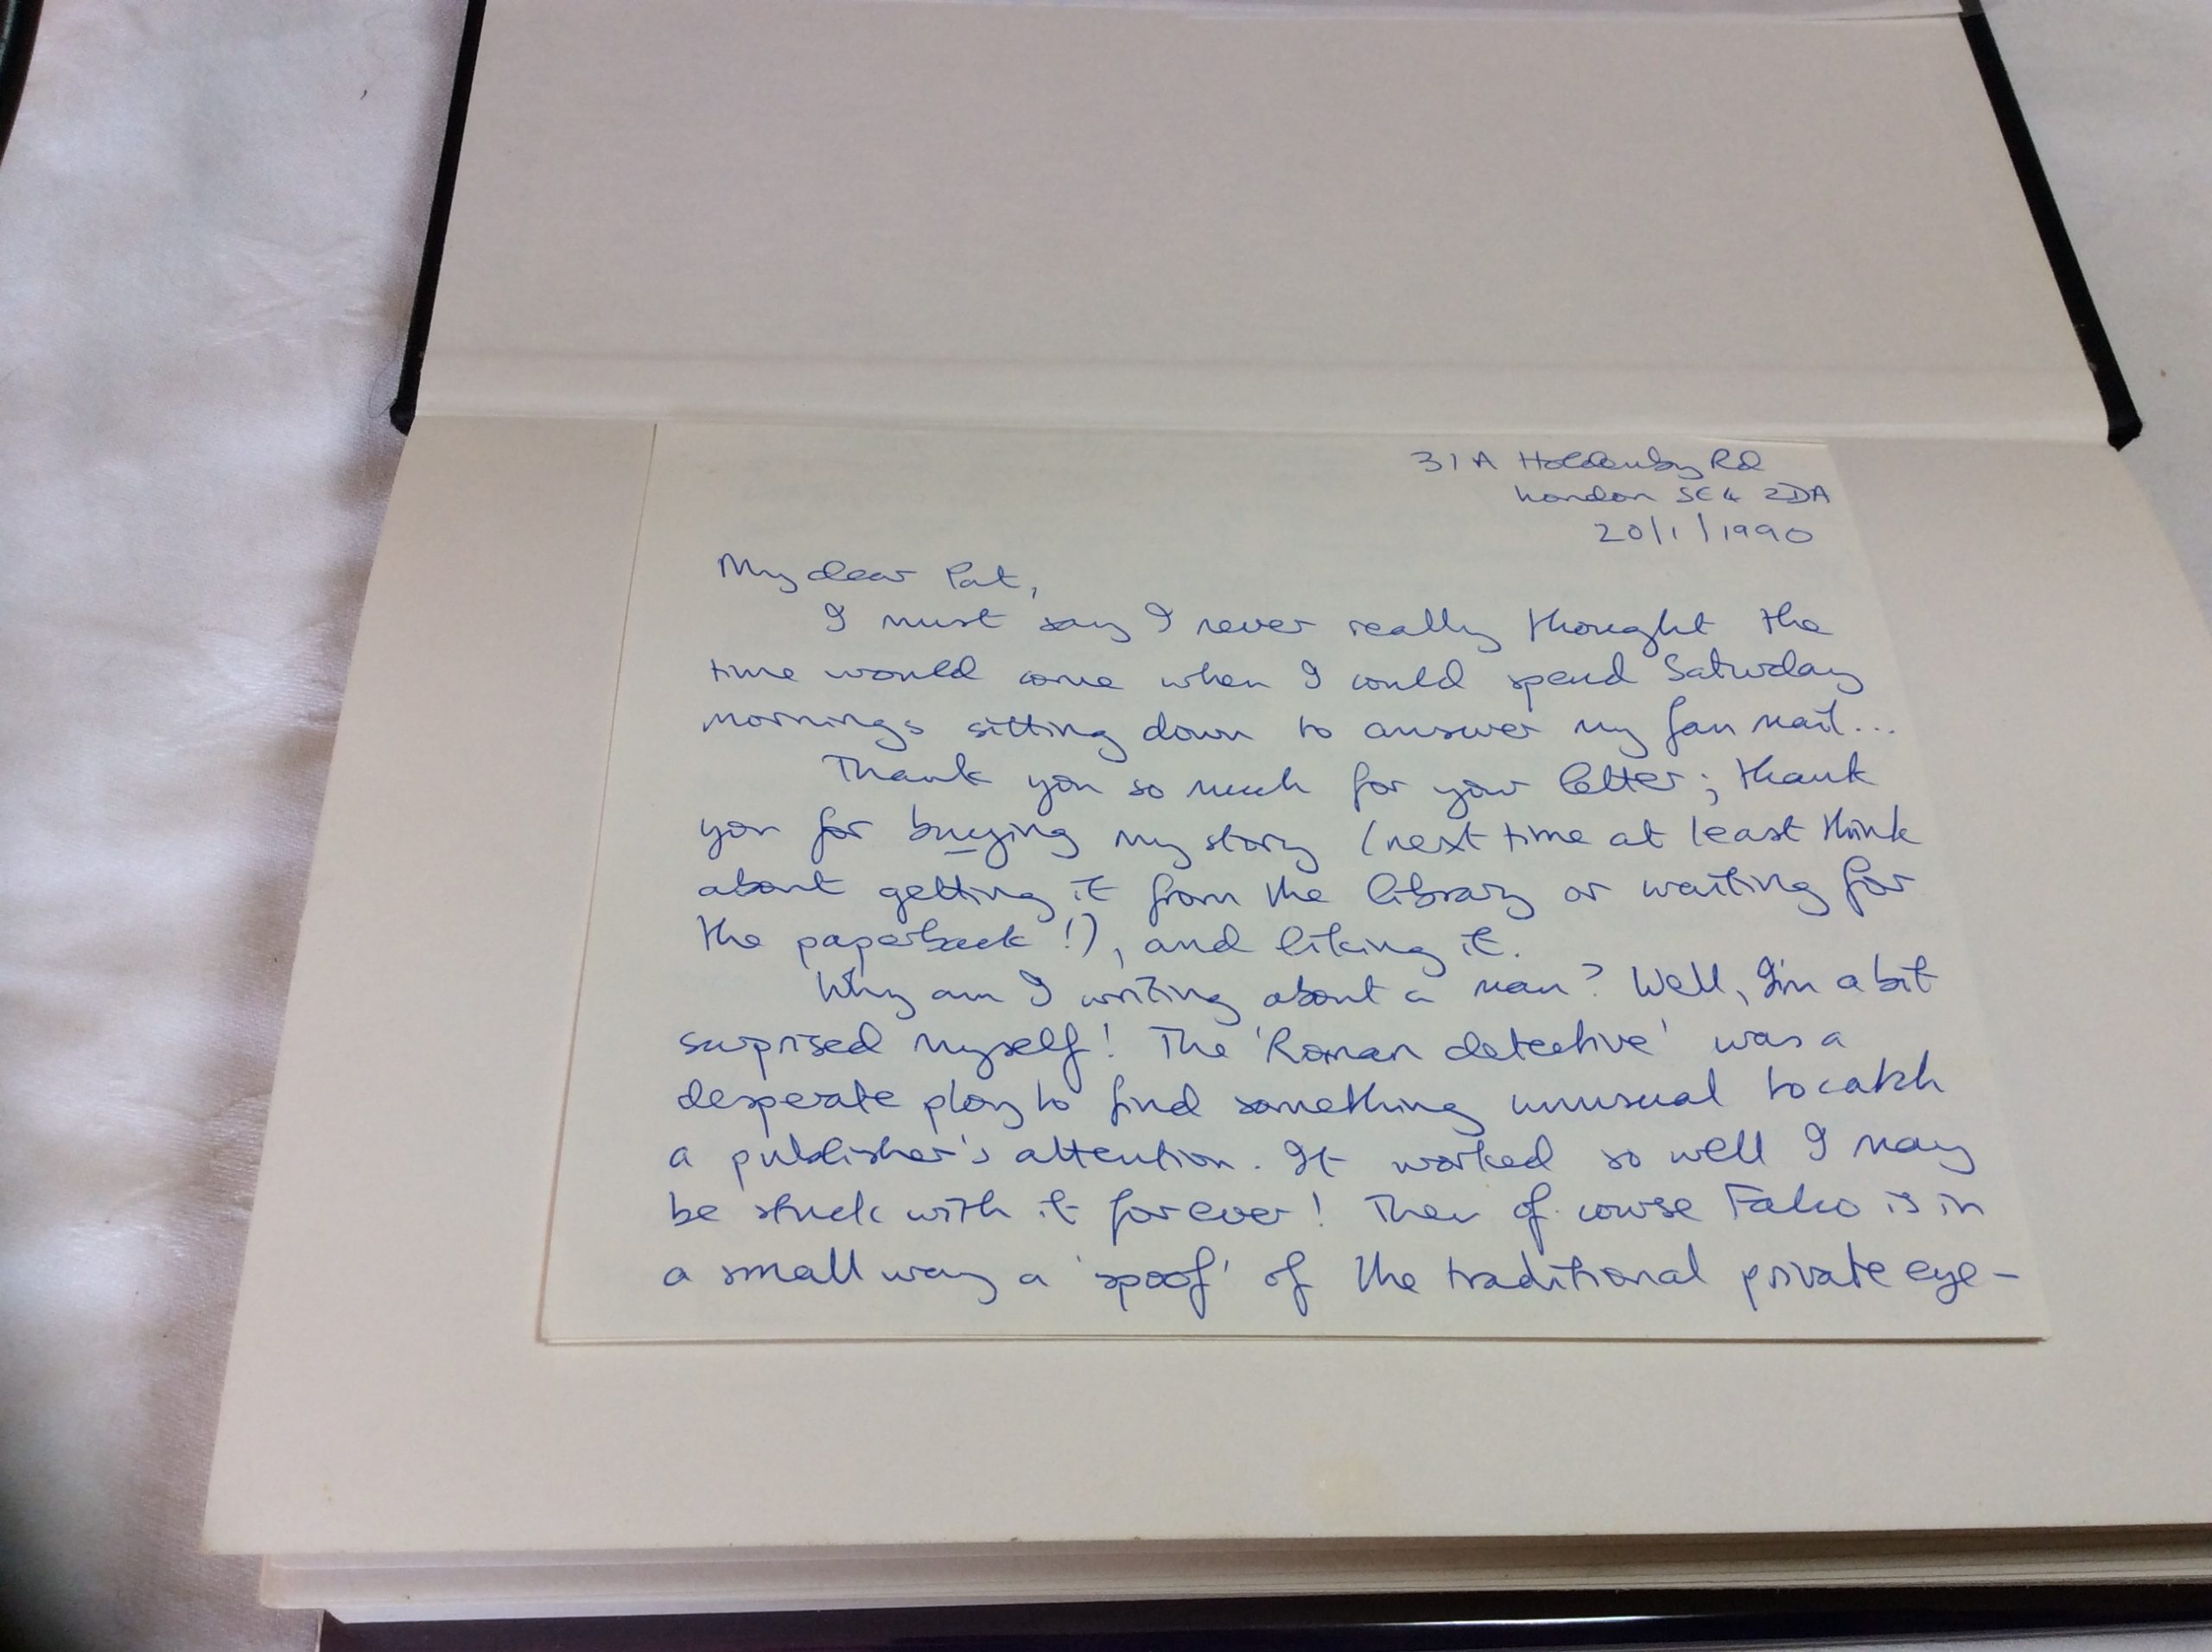 31A Holdenby Rd
London SE4 2DA
20/1/1990
My dear Pat,
I must say I never really thought the
time would come when I could spend Saturday
mornings sitting down to answer my fan mail...
Thank you so much for your letter; thank
you for buying my story (next time at least think
about getting it from the library or waiting for
the paperback!), and liking it.
Why am I writing about a man? Well, I'm a bit
surprised myself! The 'Roman detective' was a
desperate ploy to find something unusual to catch
a publisher's attention. It worked so well I may
be stuck with it forever! Then of course Falco is in
a small way a 'spoof' of the traditional private eye-